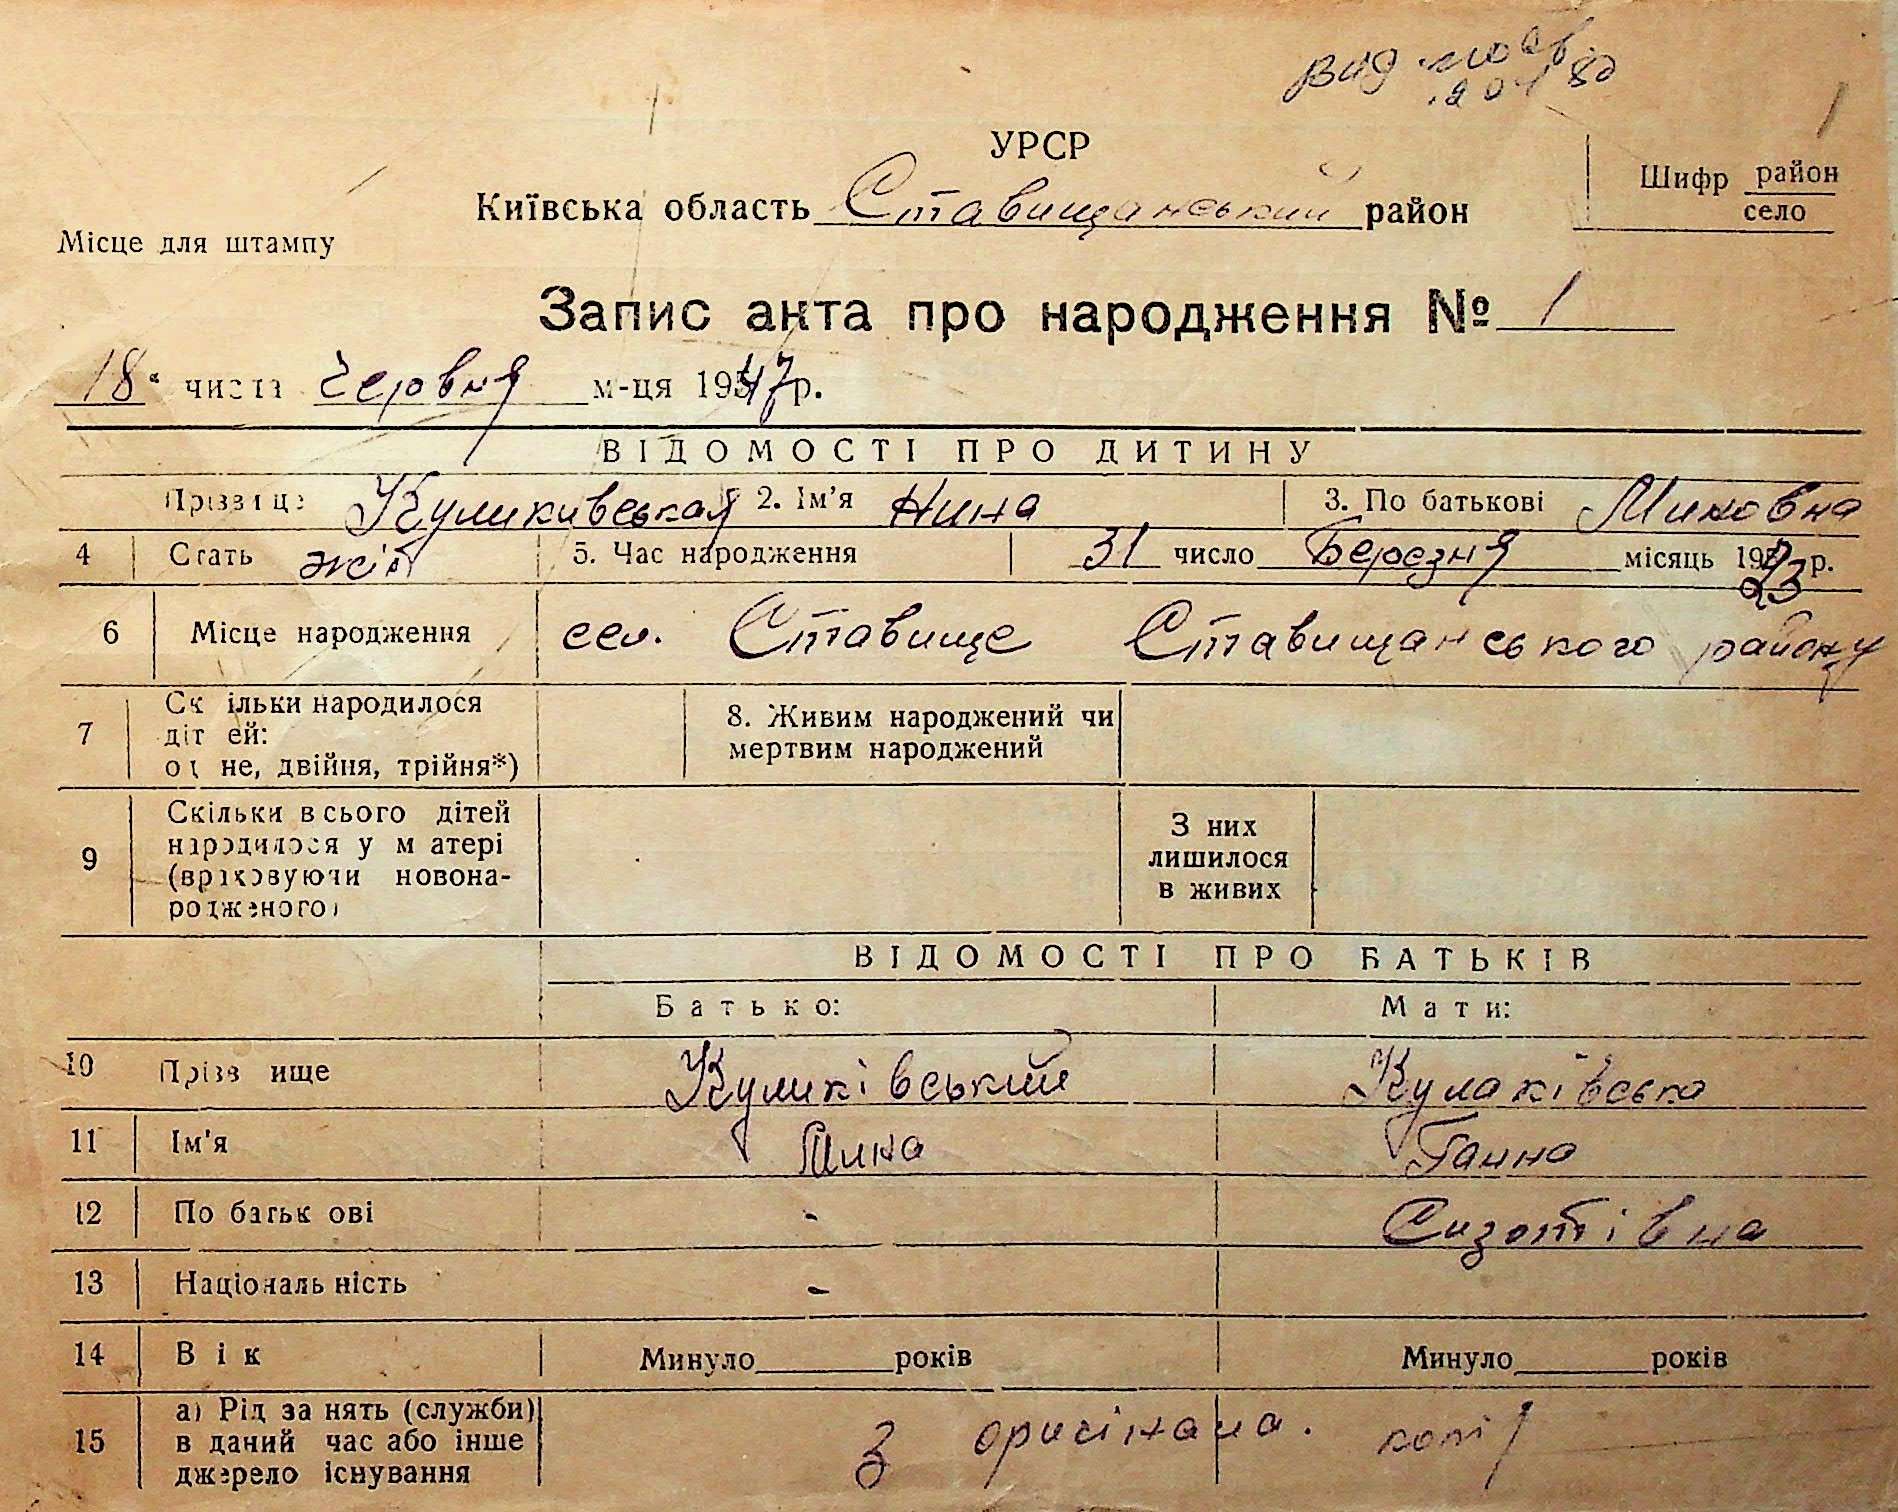 вид.
УРСР
Київська область Ставищанський район
Шифр район
село
Місце для штампу
Запис акта про народження № 1
18 числа Червня м-ця 1947 р.
ВІДОМОСТІ ПРО ДИТИНУ
Прізвище Куликивськая 2. Ім'я Нина 3. По батькові Миновна
4 Стать жін 5. Час народження 31 число Березня місяць 1923 р.
6 Місце народження сел. Ставище Ставищанського району
7 Скільки народилося дітей: одне, двійня, трійня*) 8. Живим народжений чи мертвим народжений
9 Скільки всього дітей народилося у матері (враховуючи новонародженого) З них лишилося в живих
ВІДОМОСТІ ПРО БАТЬКІВ
Батько: Мати:
10 Прізвище Куликівський Кулаківська
11 Ім'я Мина Ганна
12 По батькові - Сизонтівна
13 Національність -
14 Вік Минуло років Минуло років
15 а) Рід занять (служби) в даний час або інше джерело існування З оригінала. копія